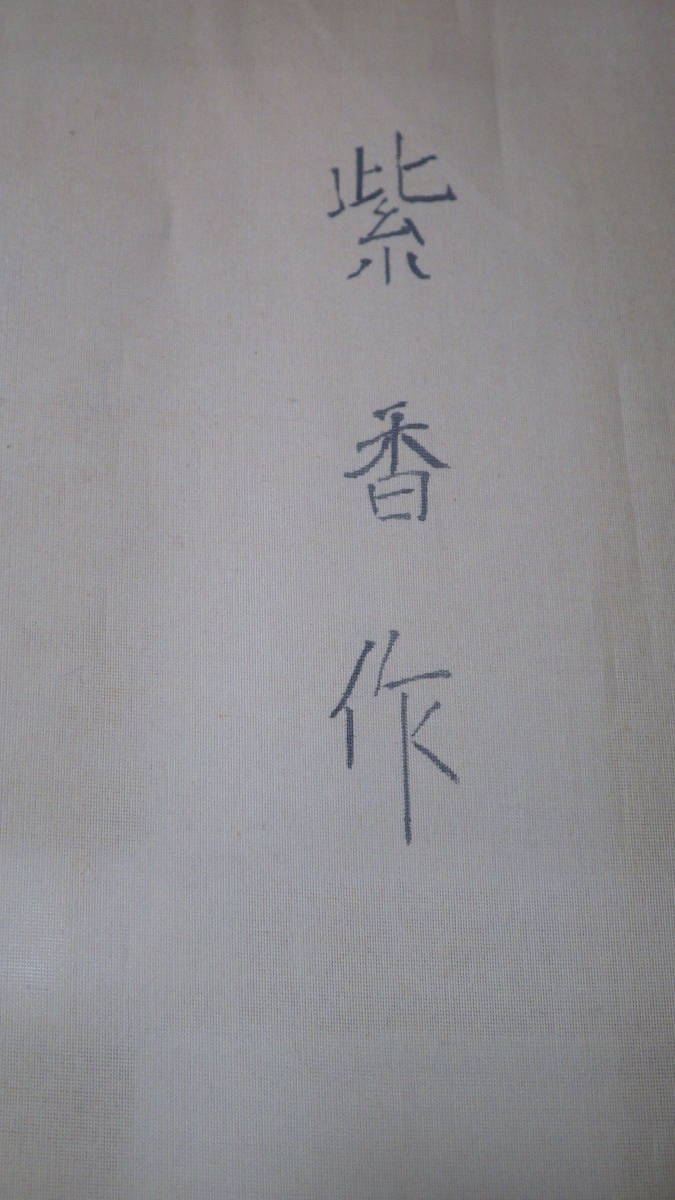 紫香作